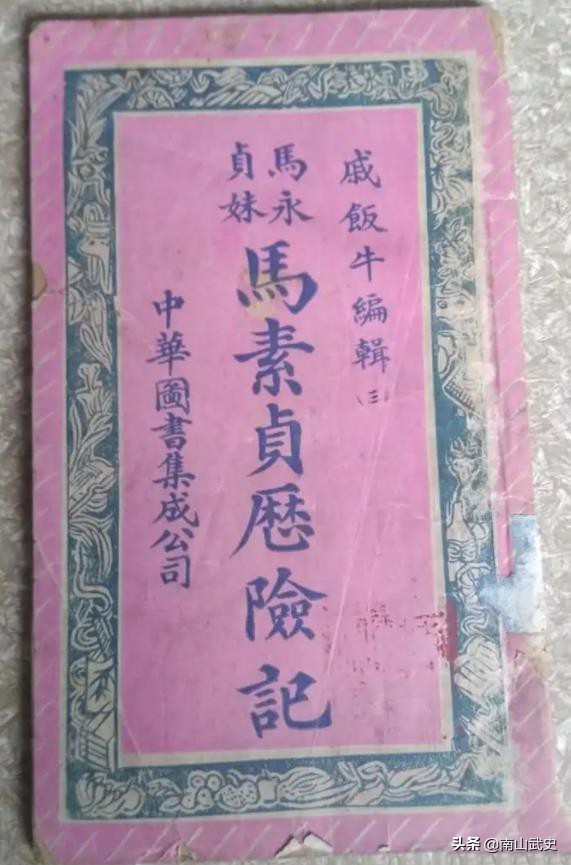 戚飯牛編輯(三)
馬永貞妹
馬素貞歷險記
中華圖書集成公司
头条 @南山武史